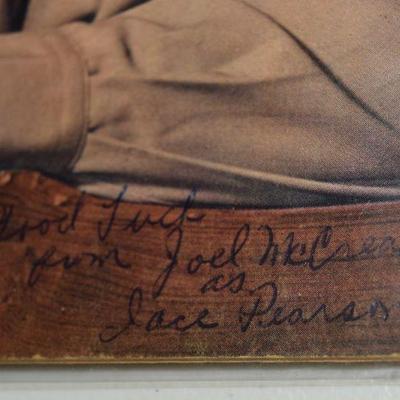 Good Luck
from Joel McCrea
as
Jace Pearson